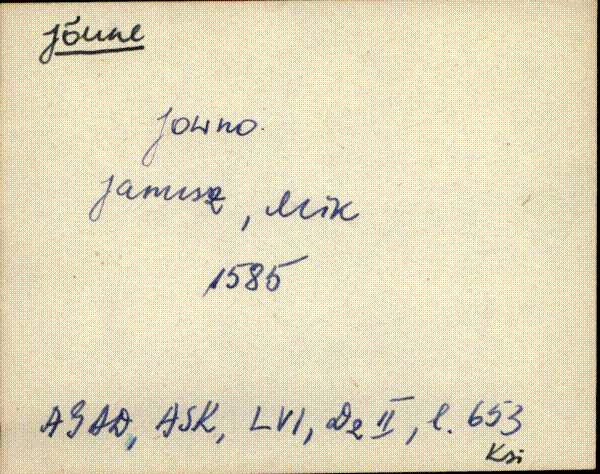 Jōune
Jowno.
Janusz, Mik
1585
AGAD, ASK, LVI, D2 II, l. 653
Ksi